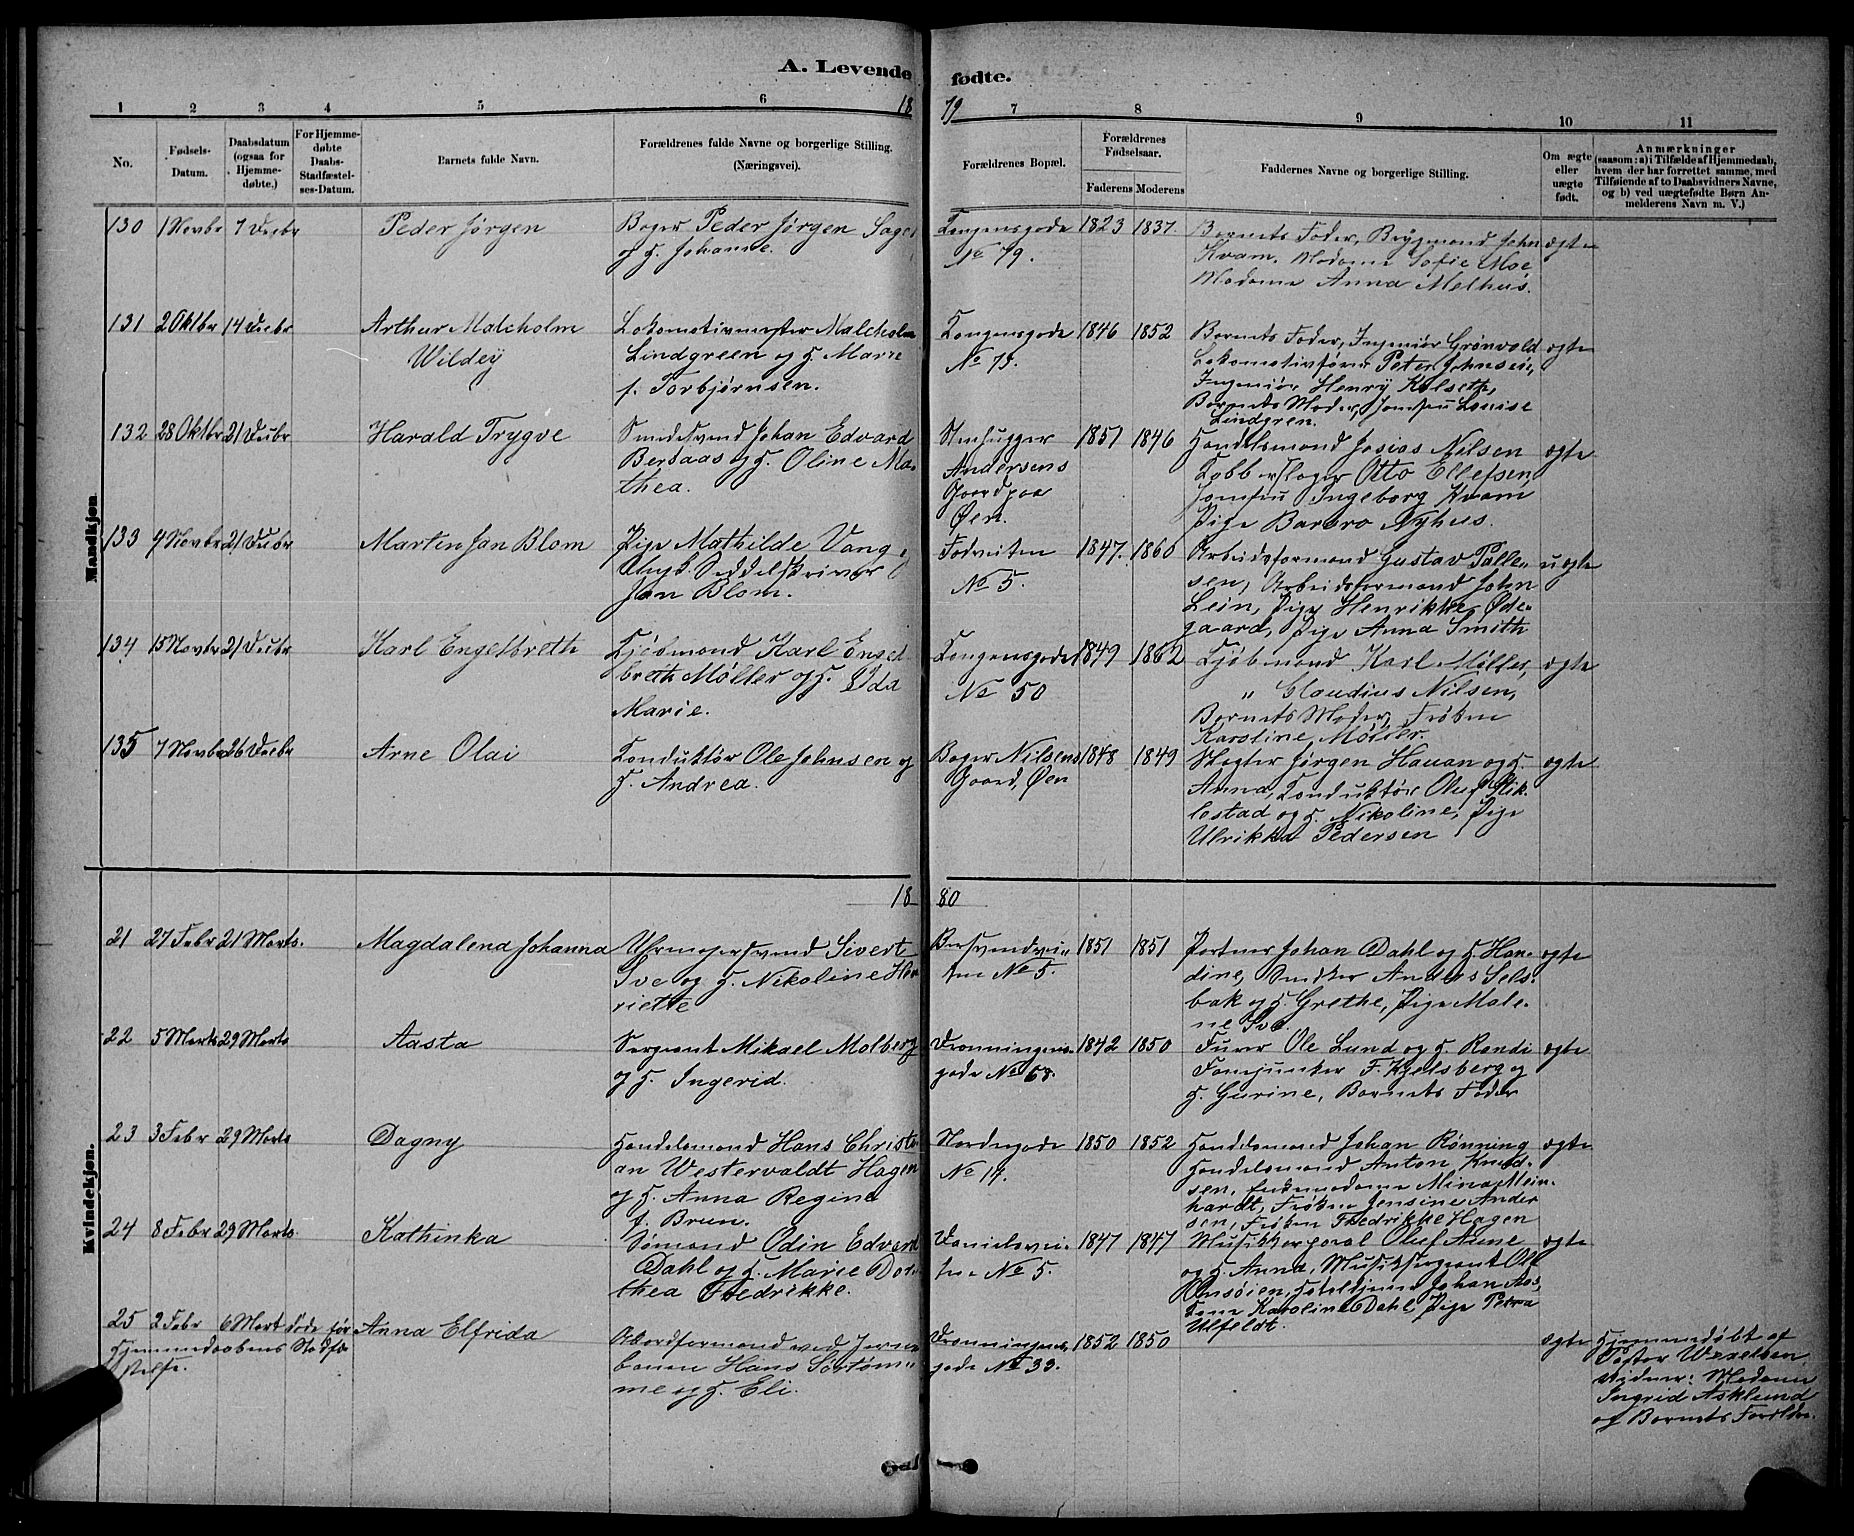 A. Levende fødte.
1879
1 2 3 4 5 6 7 8 9 10 11
No.
Fødsels-Datum.
Daabsdatum (ogsaa for Hjemme-døbte.)
For Hjemme-døbte Daabs-Stadfæstel-ses-Datum.
Barnets fulde Navn.
Forældrenes fulde Navne og borgerlige Stilling. (Næringsvei).
Forældrenes Bopæl.
Forældrenes Fødselsaar.
Faderens Moderens
Faddernes Navne og borgerlige Stilling.
Om ægte eller uægte født.
Anmærkninger (saasom: a) i Tilfælde af Hjemmedaab, hvem der har forrettet samme, med Tilføiende af to Daabsvidners Navne, og b) ved uægtefødte Børn An-melderens Navn m. V.)
Mandkjøn.
130 1 Novbr 7 Decbr
Peder Jørgen
Bager Peder Jørgen
og H. Johanne.
Kongensgade
No 79.
1823 1837
Barnets Fader, Brygmand John
Kvam, Madame Sofie Moe
Madame Anna Melhus.
ægte
131 2 Oktbr 14 Decbr
Arthur Malcholm
Wildey
Lokomotivmester Malcholm
Lindgreen og H. Marie
f. Torbjørnsen.
Kongensgade
No 75.
1846 1852
Barnets Fader, Ingeniør Grønvold
Lokomotivfører Peter Johnsen,
Ingeniør Henry Kolseth,
Barnets Moder, Jomfru Louise
Lindgren.
ægte
132 28 Oktbr 21 Decbr
Harald Trygve
Smedesvend Johan Edvard
Bersaas og H. Oline Ma-
thea.
Stenhugger
Andersens
Gaard paa
Øen.
1851 1846
Handelsmand Josias Nilsen
Kobberslager Otto Ellefsen,
Jomfru Ingeborg Kvam
Pige Barbro Nyhus.
ægte
133 4 Novbr 21 Decbr
Martin Jan Blom
Pige Mathilde Vang
Ungk. Seddelskriver
Jan Blom.
Fodveiten
No 5.
1847. 1860
Arbeidsformand Gustav Palle-
sen, Arbeidsformand John
Lein, Pige Henrikke Øde-
gaard, Pige Anna Smith
uægte
134 15 Novbr 21 Decbr
Karl Engelbreth
Kjøbmand Karl Engel
breth Møller og H. Ida
Marie.
Kongensgade
No 50
1849 1862
Kjøbmand Karl Møller,
" Claudius Nilsen,
Barnets Moder, Frøken
Karoline Møller.
ægte
135 7 Novbr 26 Decbr
Arne Olai
Konduktør Ole Johnsen og
H. Andrea.
Bager Nilsens
Gaard, Øen
1848 1849
Slagter Jørgen Hauan og H.
Anna, Konduktør Oluf Stik-
lestad og H. Nikoline, Pige
Ulrikka Pedersen
ægte
1880
Kvindekjøn.
21 27 Febr 21 Marts.
Magdalena Johanna
Uhrmagersvend Sivert
Sve og H. Nikoline Hen
riette
No 5.
1851 1851
Portner Johan Dahl og H. Han-
dine, Snedker Andreas Sels-
bak og H. Grethe, Pige Male-
ne Sve.
ægte
22 5 Marts 29 Marts
Aasta
Sergeant Mikael Molberg
og H. Ingerid.
Dronningens-
gade No 68.
1842 1850
Furer Ole Lund og H. Randi
Fanejunker F. Kjelsberg og
H. Gurine, Barnets Fader
ægte
23 3 Febr 29 Marts
Dagny
Handelsmand Hans Christi
an Westervaldt Hagen
og H. Anna Regine
f. Brun.
Nordregade
No 19.
1850 1852
Handelsmand Johan Rønning
Handelsmand Anton Knud-
sen, Enkemadame Mina Mein
hardt, Frøken Jensine Ander
sen, Frøken Fredrikke Hagen
ægte
24 8 Febr 29 Marts.
Kathinka
Sømand Odin Edvard
Dahl og H. Marie Doro
thea Fredrikke.
Danielsvei-
ten No 5.
1847 1847
Musikkorporal Oluf Arne
og H. Anna, Musiksergeant Ole
Johan Aas,
Karoline Dahl, Pige Petra
Ulfeldt.
ægte
25 2 Febr 6 Mart døde før
Hjemmedaabens Stadfæ
stelse.
Anna Elfrida
Akkordformand ved Jern-
banen Hans Sortøm-
me og H. Eli.
Dronningens
gade No 33.
1852 1850
ægte
Hjemmedøbt af
Pastor Wexelsen
Vidner: Madame
Ingrid Asklund
og Barnets Forældre.